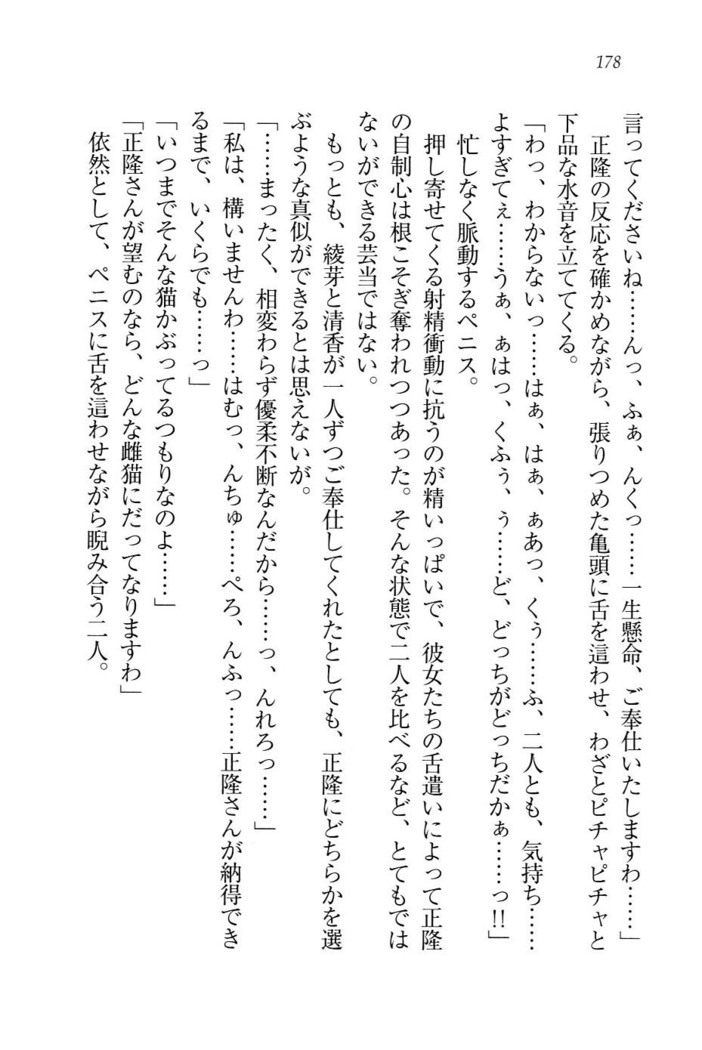 178
言ってくださいね……んっ、ふぁ、んくっ……一生懸命、ご奉仕いたしますわ……」
　正隆の反応を確かめながら、張りつめた亀頭に舌を這わせ、わざとピチャピチャと
下品な水音を立ててくる。
「わっ、わからないっ……はぁ、はぁ、ぁあっ、くぅ……ふ、二人とも、気持ち……
よすぎてぇ……うぁ、ぁはっ、くふぅ、う……ど、どっちがどっちだかぁ……っ!!」
　忙しなく脈動するペニス。
　押し寄せてくる射精衝動に抗うのが精いっぱいで、彼女たちの舌遣いによって正隆
の自制心は根こそぎ奪われつつあった。そんな状態で二人を比べるなど、とてもでは
ないができる芸当ではない。
　もっとも、綾芽と清香が一人ずつご奉仕してくれたとしても、正隆にどちらかを選
ぶような真似ができるとは思えないが。
「……まったく、相変わらず優柔不断なんだから……っ、んれろっ……」
「私は、構いませんわ……はむっ、んちゅ……ぺろ、んふっ……正隆さんが納得でき
るまで、いくらでも……っ」
「いつまでそんな猫かぶってるつもりなのよ……」
「正隆さんが望むのなら、どんな雌猫にだってなりますわ」
　依然として、ペニスに舌を這わせながら睨み合う二人。